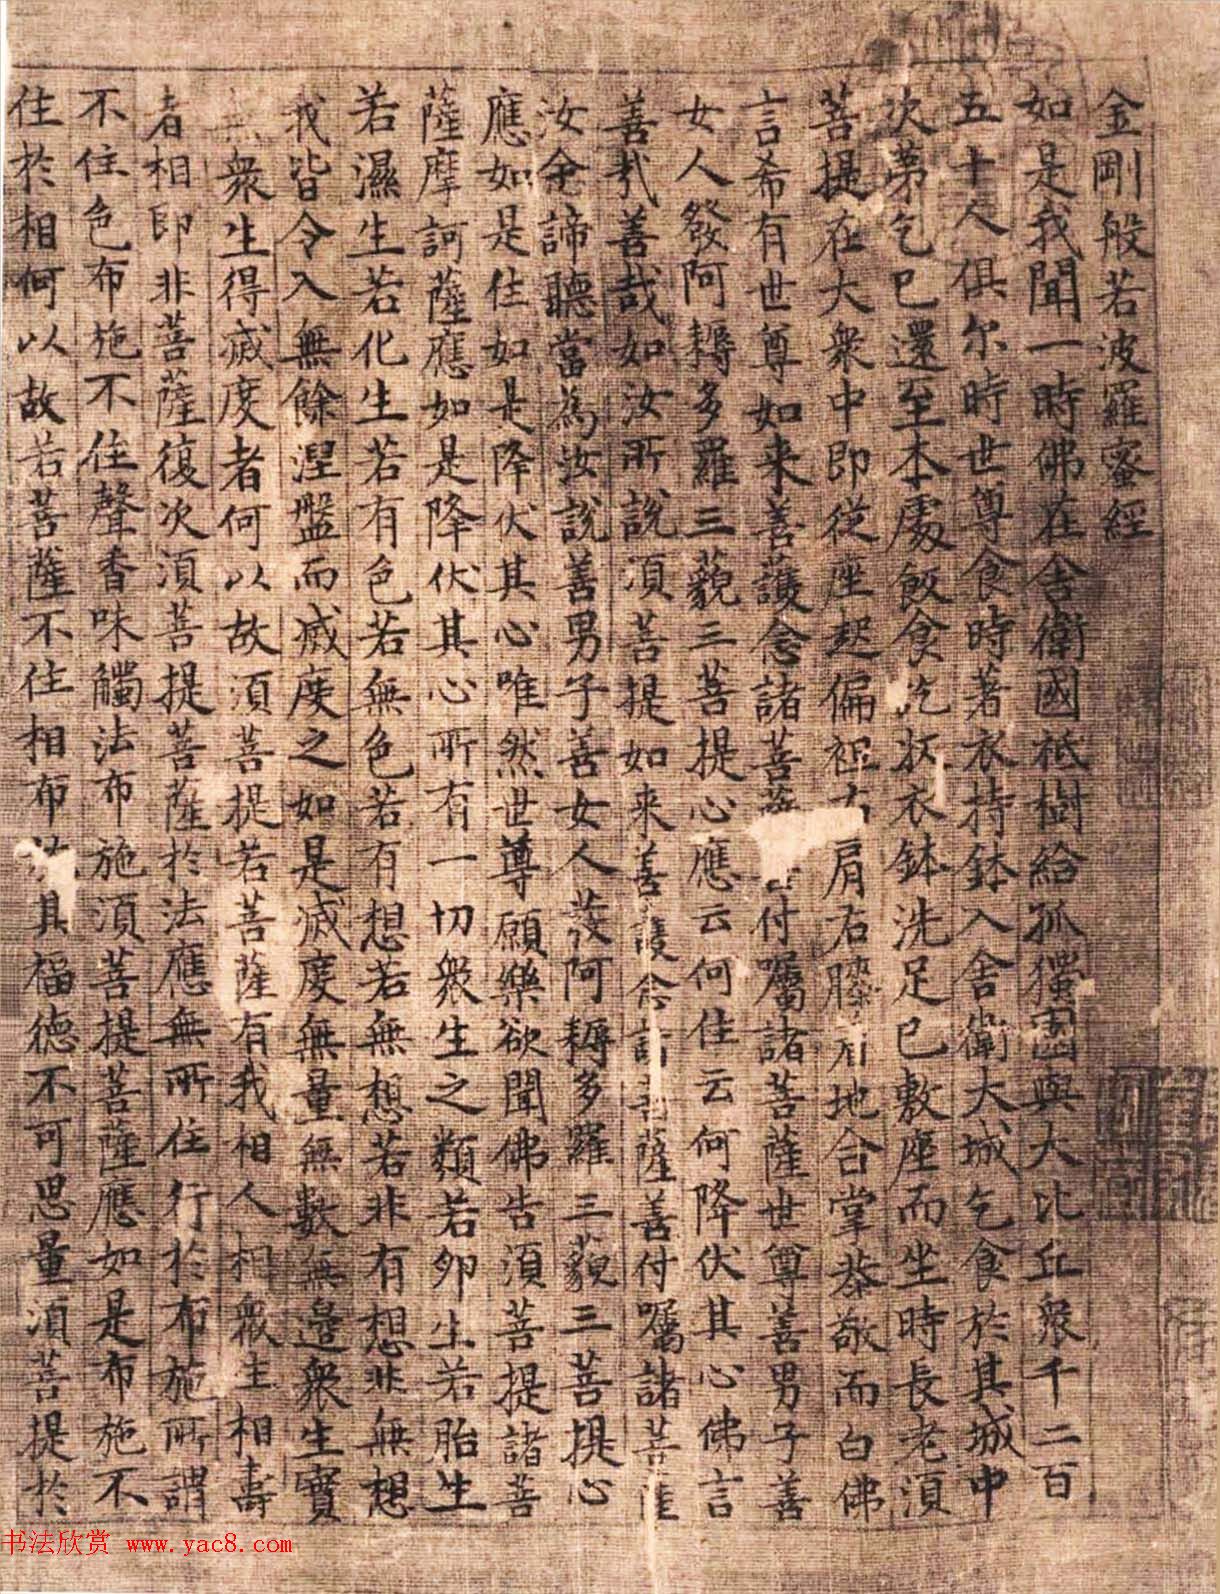 金剛般若波羅蜜經
如是我聞一時佛在舍衛國祇樹給孤獨園與大比丘衆千二百
五十人俱尔時世尊食時著衣持鉢入舍衛大城乞食於其城中
次第乞已還至本處飯食訖收衣鉢洗足已敷座而坐時長老湏
菩提在大衆中即從座起偏袒右肩右膝着地合掌恭敬而白佛
言希有世尊如来善護念諸菩付囑諸菩薩世尊善男子善
女人發阿耨多羅三藐三菩提心應云何住云何降伏其心佛言
善哉善哉如汝所說湏菩提如来善護念諸菩薩善付囑諸菩薩
汝今諦聽當為汝說善男子善女人發阿耨多羅三藐三菩提心
應如是住如是降伏其心唯然世尊願樂欲聞佛告湏菩提諸菩
薩摩訶薩應如是降伏其心所有一切衆生之類若卵生若胎生
若濕生若化生若有色若無色若有想若無想若非有想非無想
我皆令入無餘涅盤而滅度之如是滅度無量無數無邊衆生實
無衆生得滅度者何以故湏菩提若菩薩有我相人相衆生相壽
者相即非菩薩復次湏菩提菩薩於法應無所住行於布施所謂
不住色布施不住聲香味觸法布施湏菩提菩薩應如是布施不
住於相何以故若菩薩不住相布其福德不可思量湏菩提於
书法欣赏 www.yac8.com